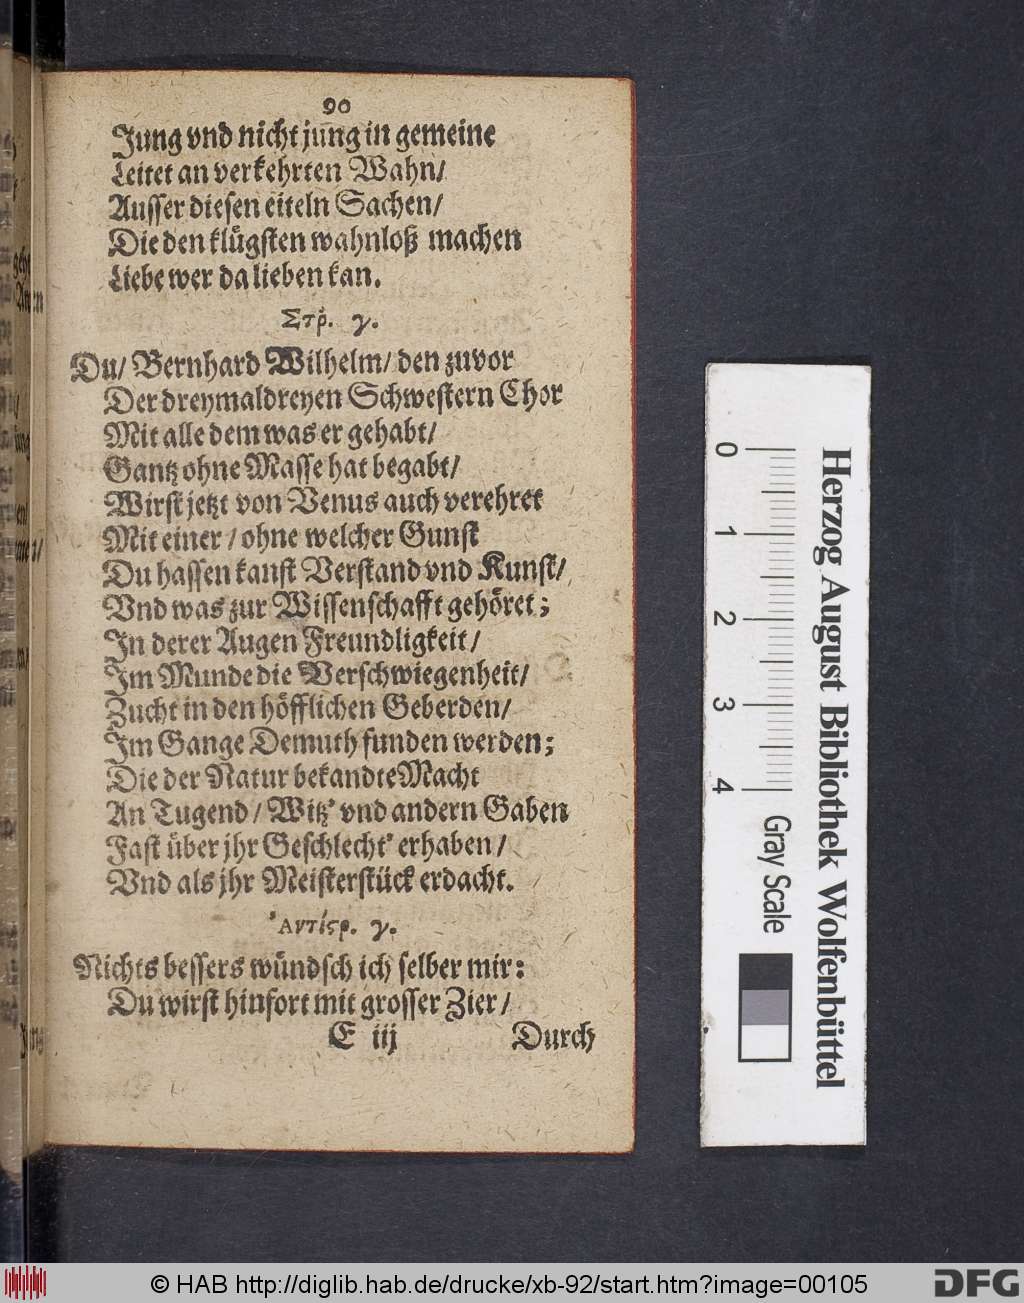 90
Jung vnd nicht jung in gemeine
Leitet an verkehrten Wahn/
Ausser diesen eiteln Sachen/
Die den klůgsten wahnloß machen
Liebe wer da lieben kan.
Στρ. γ.
Du/ Bernhard Wilhelm/ den zuvor
Der dreymaldreyen Schwestern Chor
Mit alle dem was er gehabt/
Gantz ohne Masse hat begabt/
Wirst jetzt von Venus auch verehret
Mit einer / ohne welcher Gunst
Du hassen kanst Verstand vnd Kunst/
Vnd was zur Wissenschafft gehöret;
In derer Augen Freundligkeit/
Im Munde die Verschwiegenheit/
Zucht in den höfflichen Geberden/
Im Gange Demuth funden werden;
Die der Natur bekandte Macht
An Tugend/ Witz' vnd andern Gaben
Fast über jhr Geschlecht' erhaben/
Vnd als jhr Meisterstück erdacht.
Ἀντίςρ. γ.
Nichts bessers wündsch ich selber mir:
Du wirst hinfort mit grosser Zier/
E iij Durch
Herzog August Bibliothek Wolfenbüttel
0 1 2 3 4
Gray Scale
© HAB http://diglib.hab.de/drucke/xb-92/start.htm?image=00105
DFG